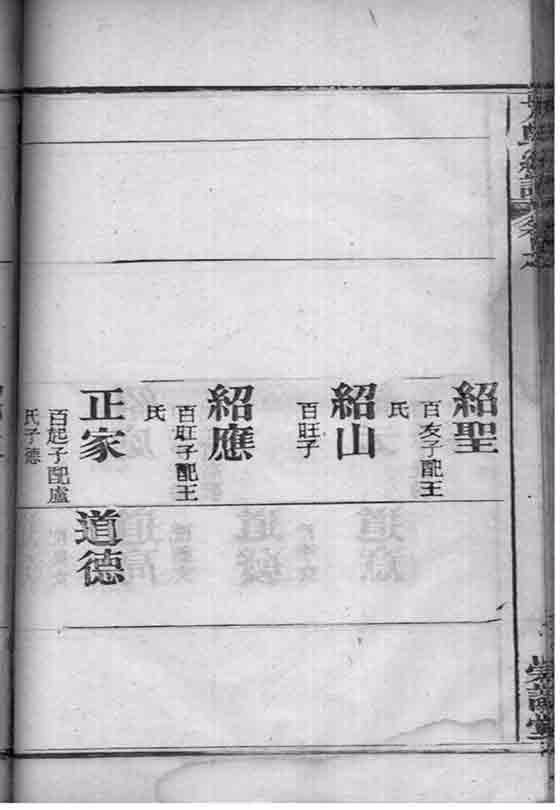 紹聖
百友子配王
氏
紹山
百旺子
紹應
百旺子配王
氏
正家
百起子配盧
氏子德
道德